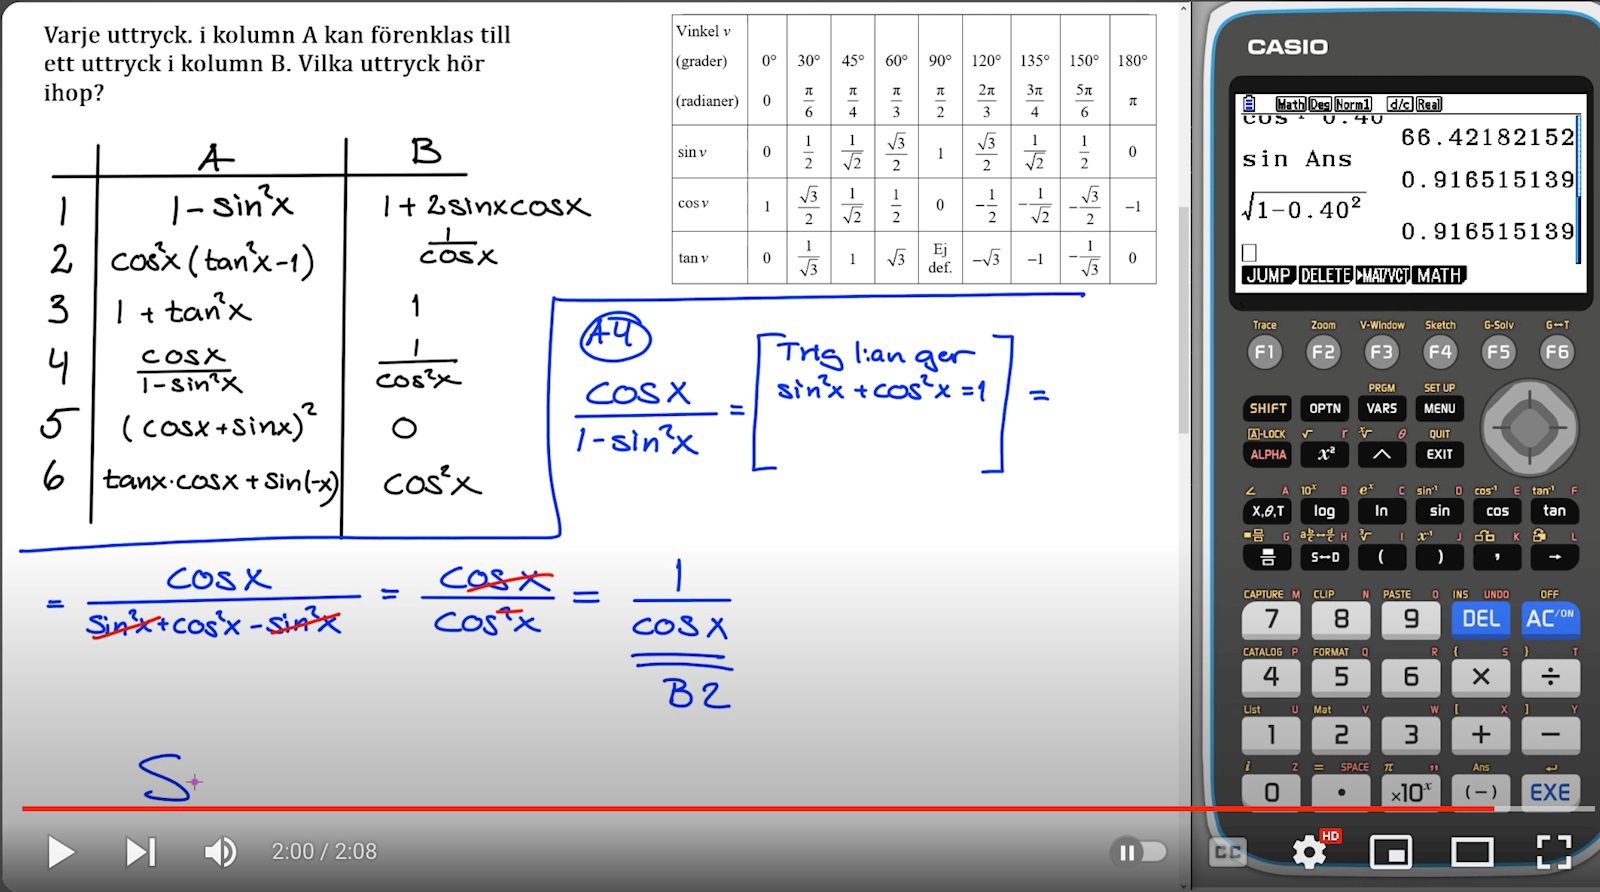 Varje uttryck. i kolumn A kan förenklas till
ett uttryck i kolumn B. Vilka uttryck hör
ihop?
A B
1 1-sin²x 1+2sinxcosx
2 cos²x(tan²x-1) 1/cosx
3 1+tan²x 1
4 cosx/(1-sin²x) 1/cos²x
5 (cosx+sinx)² 0
6 tanx·cosx+sin(-x) cos²x
Vinkel v
(grader) 0° 30° 45° 60° 90° 120° 135° 150° 180°
(radianer) 0 π/6 π/4 π/3 π/2 2π/3 3π/4 5π/6 π
sin v 0 1/2 1/√2 √3/2 1 √3/2 1/√2 1/2 0
cos v 1 √3/2 1/√2 1/2 0 -1/2 -1/√2 -√3/2 -1
tan v 0 1/√3 1 √3 Ej def. -√3 -1 -1/√3 0
A4
cosx/(1-sin²x) = [Trig 1:an ger
sin²x+cos²x=1] =
= cosx/(sin²x+cos²x-sin²x) = cosx/cos²x = 1/cosx
B2
S
2:00 / 2:08
CC
HD
CASIO
Math Deg Norm1 d/c Real
66.42182152
sin Ans
0.916515139
√1-0.40²
0.916515139
JUMP DELETE ▶MAT/VCT MATH
Trace Zoom V-Window Sketch G-Solv G↔T
F1 F2 F3 F4 F5 F6
PRGM SET UP
SHIFT OPTN VARS MENU
A-LOCK √ r ˣ√ θ QUIT
ALPHA x² ^ EXIT
∠ A 10ˣ B eˣ C sin⁻¹ D cos⁻¹ E tan⁻¹ F
X,θ,T log ln sin cos tan
G H ³√ I x⁻¹ J K L
S↔D ( ) , →
CAPTURE M CLIP N PASTE O INS UNDO OFF
7 8 9 DEL AC/ON
CATALOG P FORMAT Q R { S } T
4 5 6 × ÷
List U Mat V W [ X ] Y
1 2 3 + −
i Z = SPACE π " Ans ↵
0 . ×10ˣ (−) EXE